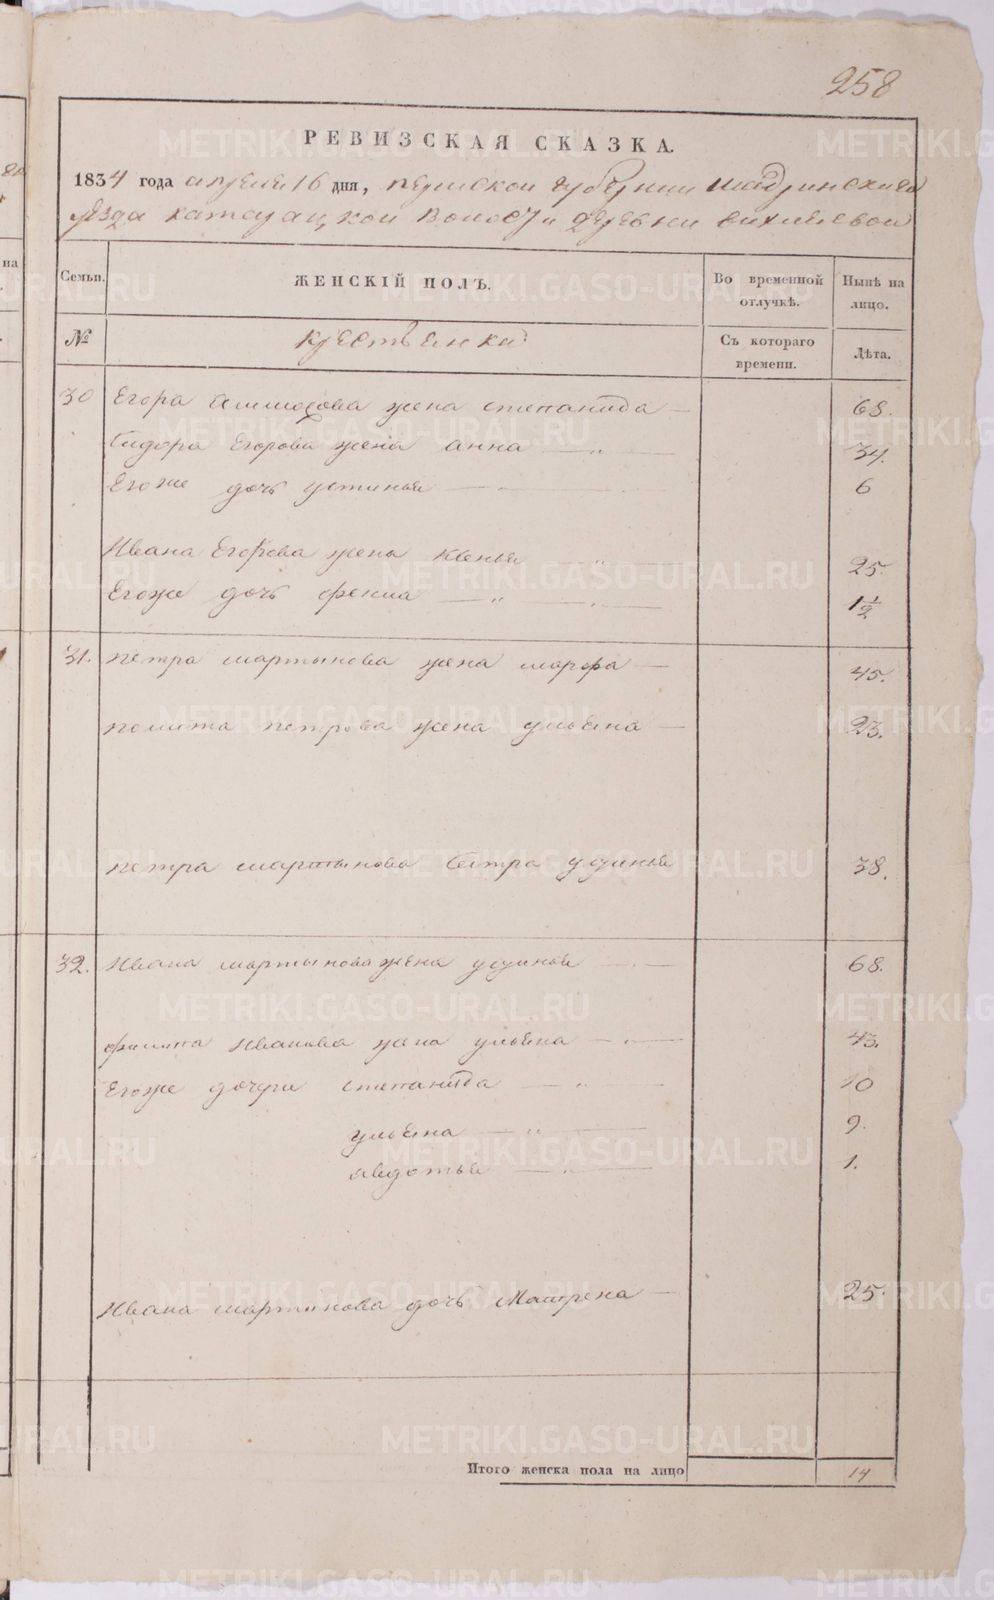 258
РЕВИЗСКАЯ СКАЗКА.
1834 года апреля 16 дня, пермской губернии шадринскаго
уезда катайской волости деревни
Семьи. ЖЕНСКІЙ ПОЛЪ. Во временной отлучкѣ. Нынѣ на лицо.
№ крестьянки Съ котораго времени. Лѣта.
30 Егора жена степанида 68.
Сидора Егорова жена анна 34.
Егоже дочь устинья 6
Ивана Егорова жена ксенья 25.
Егоже дочь фекла 1 1/2
31. петра мартынова жена марфа 45.
петрова жена ульяна 23.
петра мартынова сестра 38.
32. Ивана мартынова жена 68.
филипа Иванова жена ульяна 43.
Егоже дочери степанида 10
ульяна 9.
авдотья 1.
Ивана мартынова дочь Матрена 25.
Итого женска пола на лицо 14
METRIKI.GASO-URAL.RU